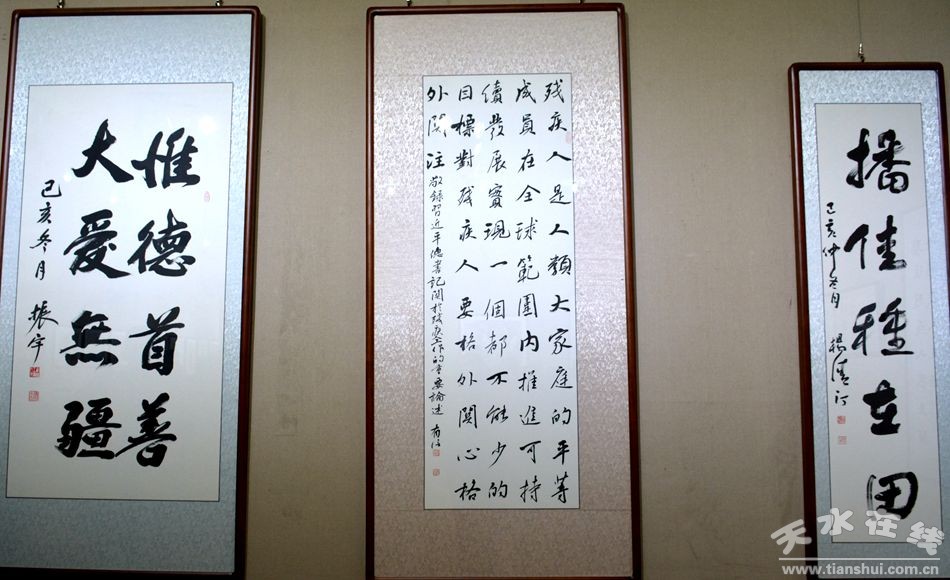 惟德首善
大爱無疆
己亥冬月 振宇
残疾人是人類大家庭的平等
成員在全球範圍内推進可持
續發展實現一個都不能少的
目標對残疾人要格外関心格
外関注
敬錄習近平總書記関於残疾工作的重要論述
播佳種在田
己亥仲冬月
天水在线
www.tianshui.com.cn